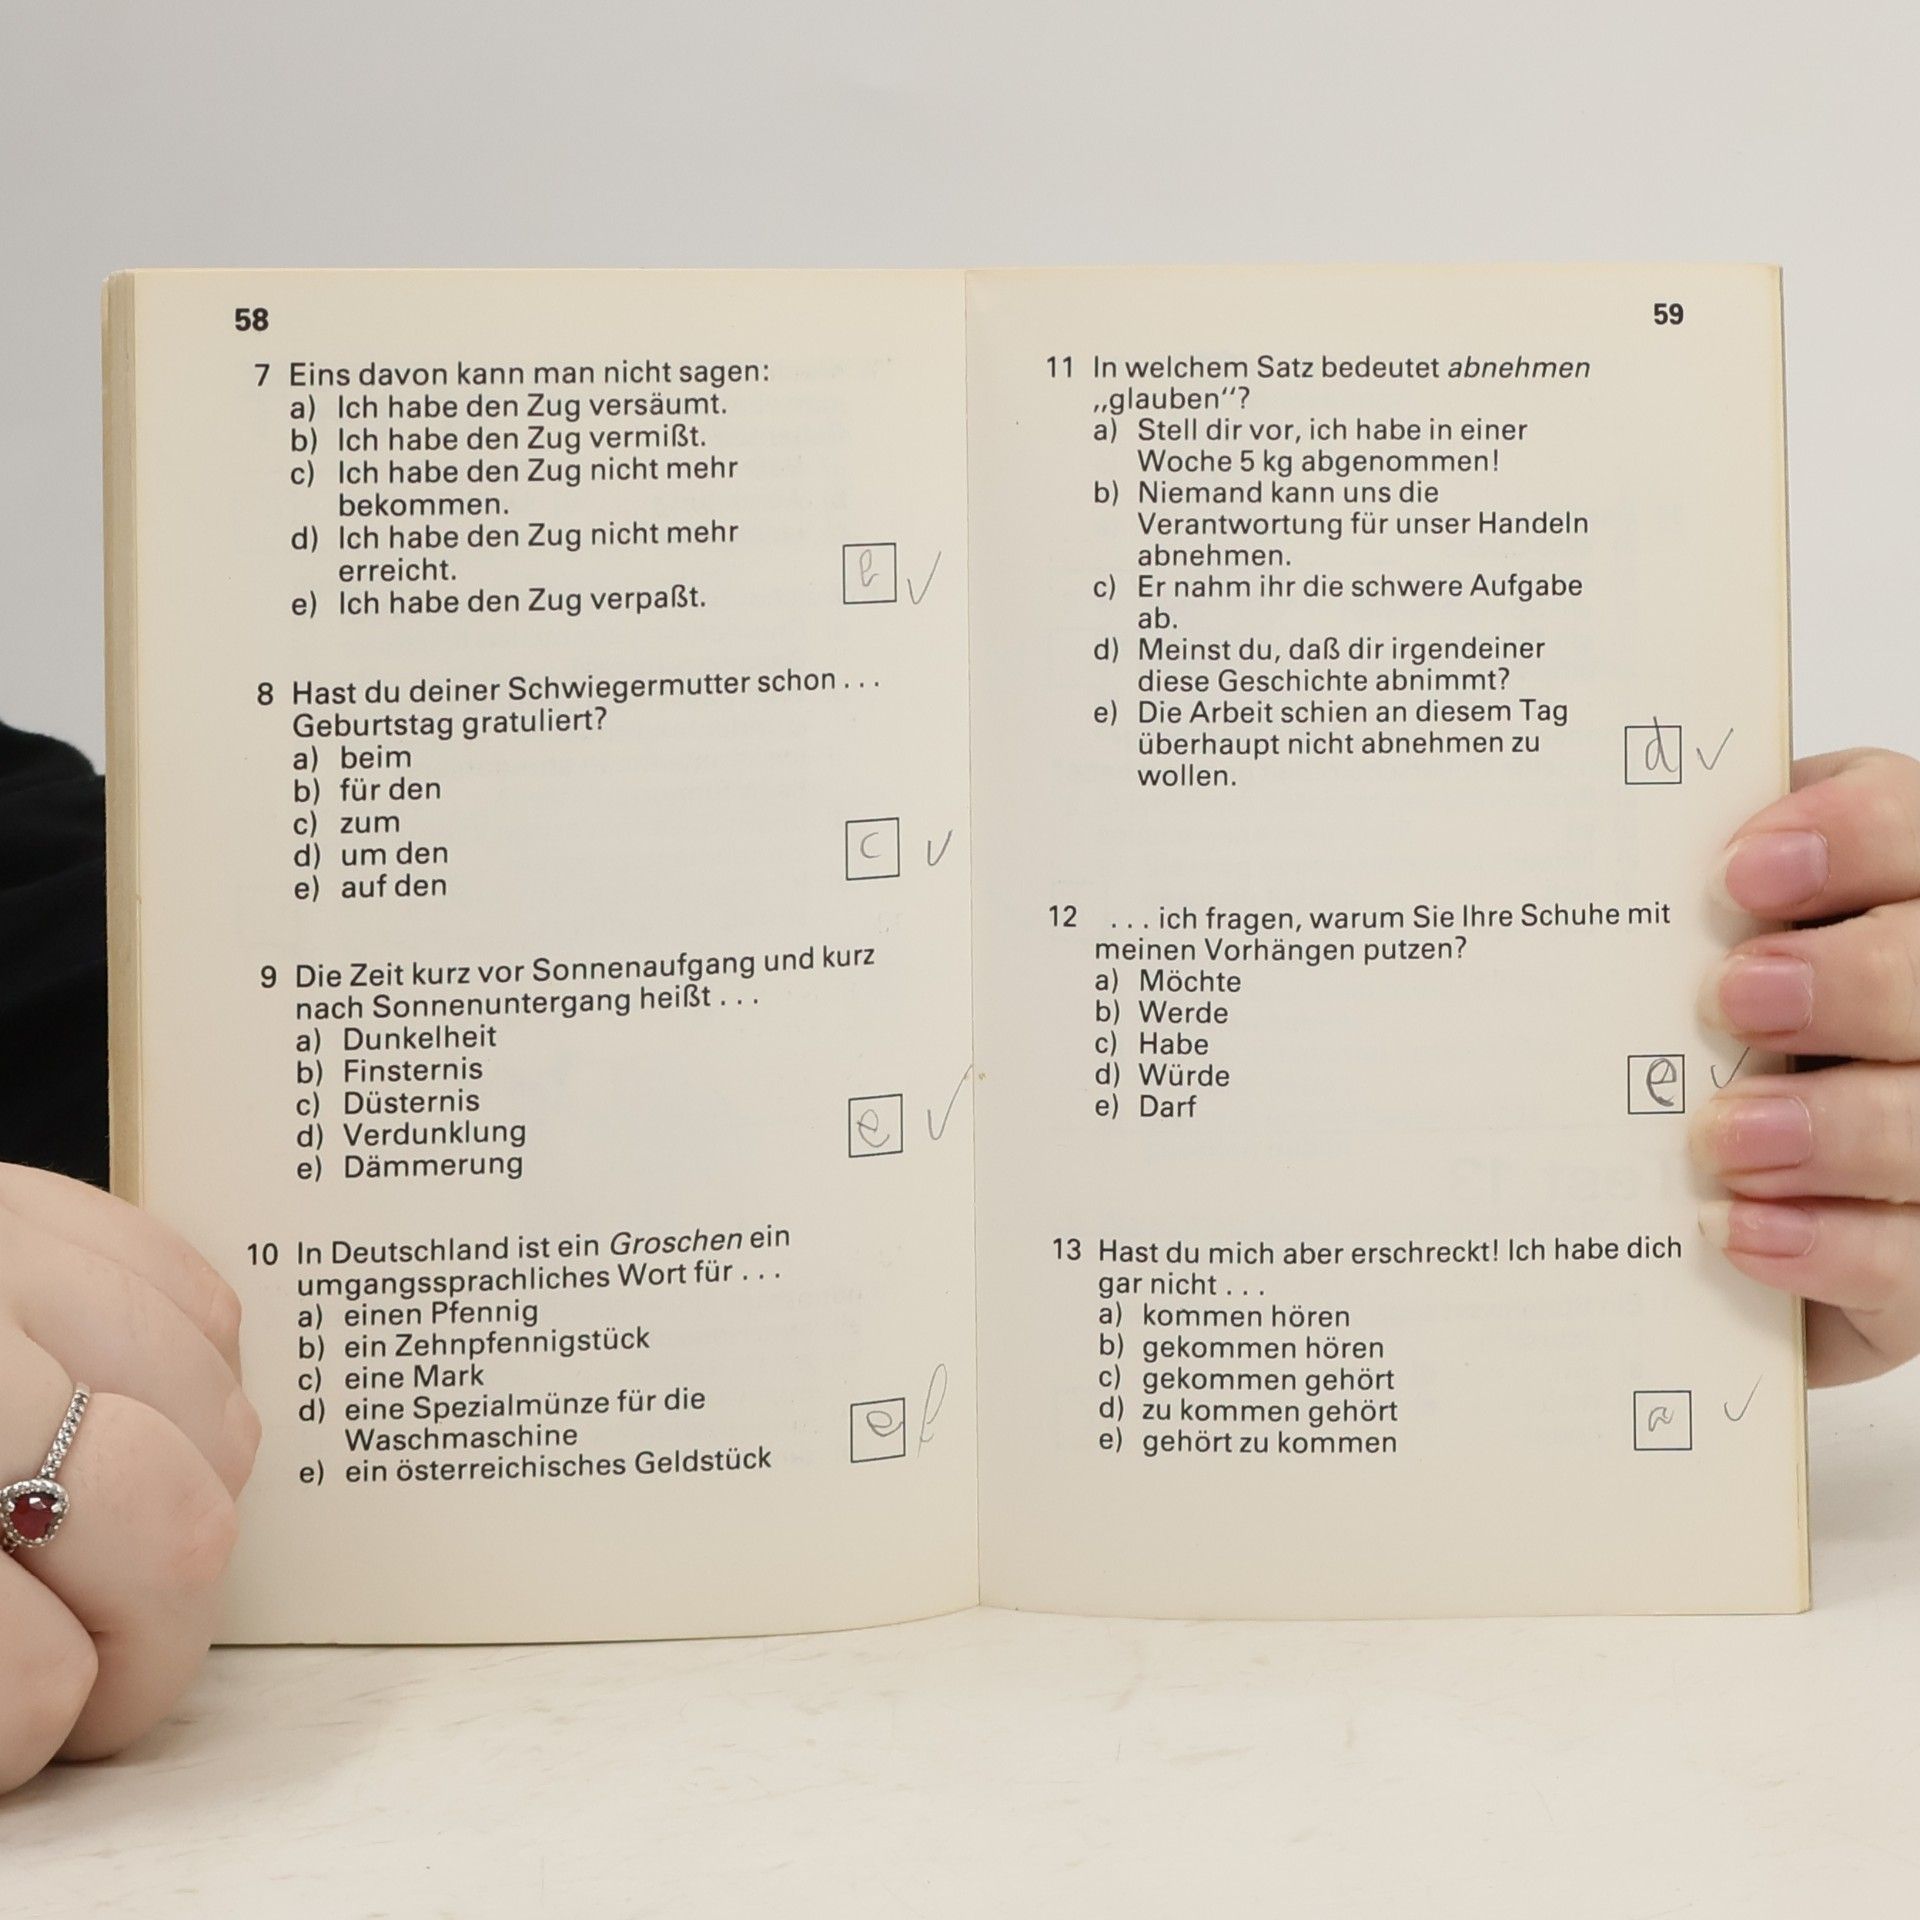 58
7 Eins davon kann man nicht sagen:
a) Ich habe den Zug versäumt.
b) Ich habe den Zug vermißt.
c) Ich habe den Zug nicht mehr
bekommen.
d) Ich habe den Zug nicht mehr
erreicht.
e) Ich habe den Zug verpaßt.
b ✓
8 Hast du deiner Schwiegermutter schon . . .
Geburtstag gratuliert?
a) beim
b) für den
c) zum
d) um den
e) auf den
c ✓
9 Die Zeit kurz vor Sonnenaufgang und kurz
nach Sonnenuntergang heißt . . .
a) Dunkelheit
b) Finsternis
c) Düsternis
d) Verdunklung
e) Dämmerung
e ✓
10 In Deutschland ist ein Groschen ein
umgangssprachliches Wort für . . .
a) einen Pfennig
b) ein Zehnpfennigstück
c) eine Mark
d) eine Spezialmünze für die
Waschmaschine
e) ein österreichisches Geldstück
e
59
11 In welchem Satz bedeutet abnehmen
„glauben“?
a) Stell dir vor, ich habe in einer
Woche 5 kg abgenommen!
b) Niemand kann uns die
Verantwortung für unser Handeln
abnehmen.
c) Er nahm ihr die schwere Aufgabe
ab.
d) Meinst du, daß dir irgendeiner
diese Geschichte abnimmt?
e) Die Arbeit schien an diesem Tag
überhaupt nicht abnehmen zu
wollen.
d ✓
12 . . . ich fragen, warum Sie Ihre Schuhe mit
meinen Vorhängen putzen?
a) Möchte
b) Werde
c) Habe
d) Würde
e) Darf
e ✓
13 Hast du mich aber erschreckt! Ich habe dich
gar nicht . . .
a) kommen hören
b) gekommen hören
c) gekommen gehört
d) zu kommen gehört
e) gehört zu kommen
a ✓